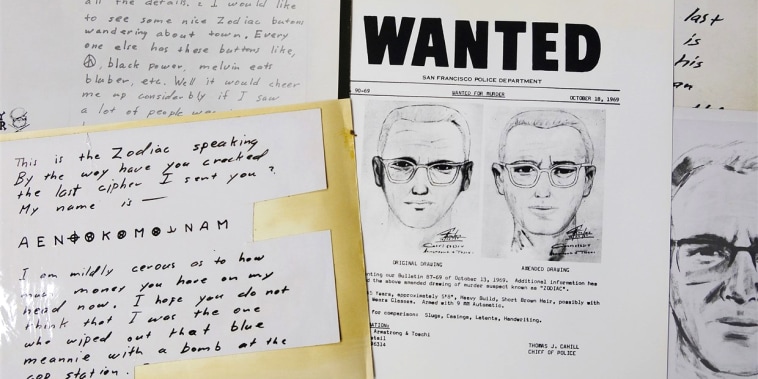 all the details. & I would like
to see some nice Zodiac butons
wandering about town. Every
one else has these buttons like,
☮, black power, melvin eats
bluber, etc. Well it would cheer
me up considerbly if I saw
a lot of people
This is the Zodiac speaking
By the way have you cracked
the last cipher I sent you?
My name is —
A E N ⌖ ⊗ K ⊗ M ⊗ ⅃ N A M
I am mildly cerous as to how
much money you have on my
head now. I hope you do not
think that I was the one
who wiped out that blue
meannie with a bomb at the
cop station.
WANTED
SAN FRANCISCO POLICE DEPARTMENT
90-69 WANTED FOR MURDER OCTOBER 18, 1969
ORIGINAL DRAWING AMENDED DRAWING
our Bulletin 87-69 of October 13, 1969. Additional information has
the above amended drawing of murder suspect known as "ZODIAC".
Years, approximately 5'8", Heavy Build, Short Brown Hair, possibly with
Wears Glasses. Armed with 9 MM Automatic.
for comparison: Slugs, Casings, Latents, Handwriting.
Armstrong & Toschi
THOMAS J. CAHILL
CHIEF OF POLICE
last
is
his